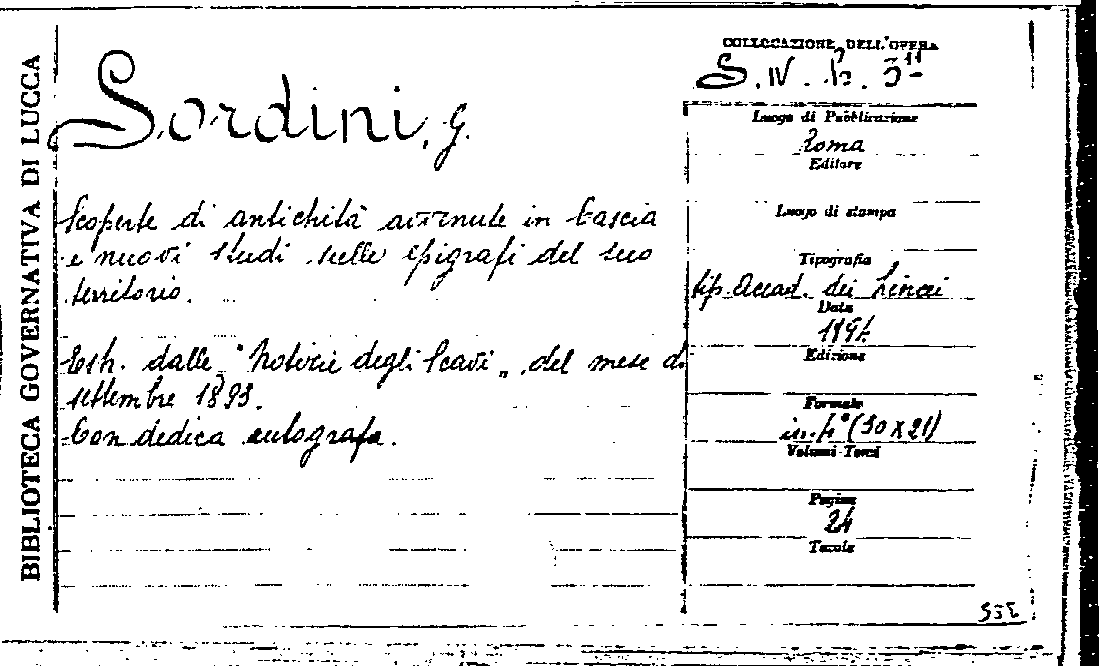 BIBLIOTECA GOVERNATIVA DI LUCCA
Sordini, G.
Scoperte di antichità avvenute in Cascia
e nuovi studi sulle epigrafi del suo
territorio.
Estr. dalle "Notizie degli Scavi" del mese di
settembre 1893.
Con dedica autografa.
COLLOCAZIONE DELL'OPERA
S. IV. b.
Luogo di Pubblicazione
Roma
Editore
Luogo di stampa
Tipografia
tip. Accad. dei Lincei
Data
Edizione
Formato
in-4° (30 x 21)
Volumi-Tomi
Pagine
24
Tavole